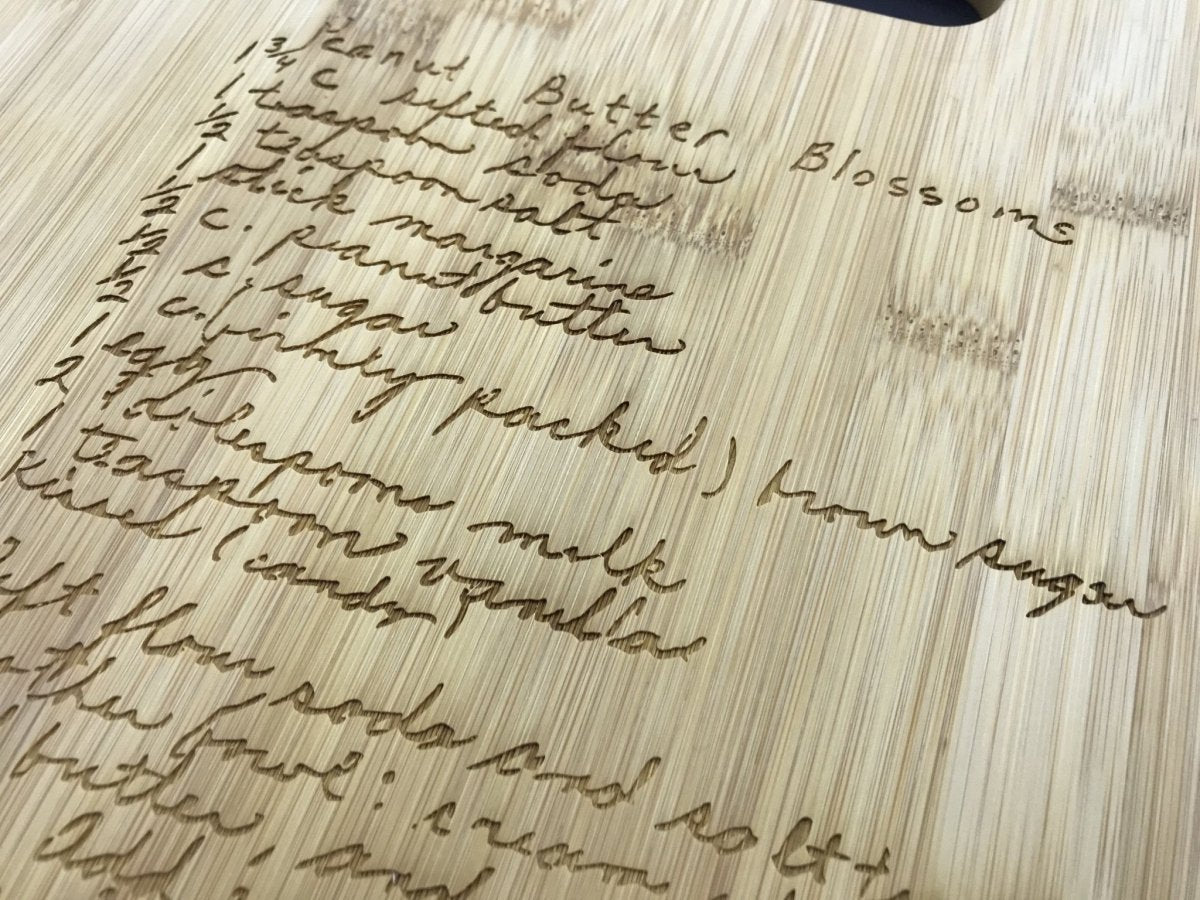 Peanut Butter Blossoms
1 3/4 C sifted flour
1 teaspoon soda
1/2 teaspoon salt
1 stick margarine
1/2 c. peanut butter
1/2 c. sugar
1/2 c. firmly packed) brown sugar
1 egg
2 tablespoons milk
1 teaspoon vanilla
kisses (candy)
flour soda and salt +
bowl: cream
butter; and
add